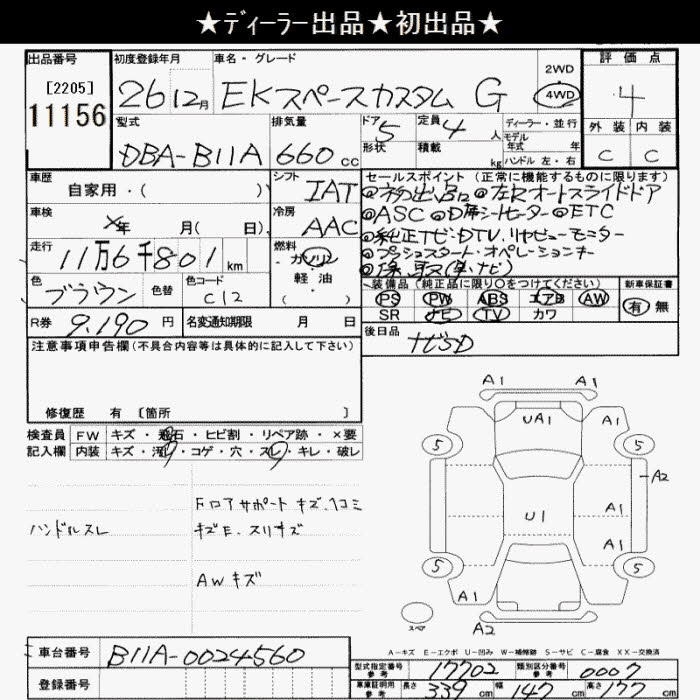 ★ディーラー出品★初出品★
出品番号
[2205]
11156
初度登録年月
26 12月
車名・グレード
EKスペースカスタム G
2WD
4WD
評価点
4
外装 内装
C C
型式
DBA-B11A
排気量
660 cc
ドア
5
形状
定員
4 人
積載
kg
ディーラー・並行
モデル
年式 年
ハンドル 左・右
車歴
自家用・( )
シフト
IAT
冷房
AAC
車検
年 月( 日)
走行
11万6千801 km
燃料
ガソリン
軽油
( )
色
ブラウン
色替
色コード
C12
セールスポイント (正常に機能するものに限ります)
◎初出品 ◎左Rオートスライドドア
◎ASC ◎D席シートヒーター ◎ETC
◎純正ナビ・DTV,リヤビューモニター
◎プッシュスタート・オペレーションキー
◎保、取(車、ナビ)
装備品(純正品に限り○をつけてください)
PS PW ABS エアB AW
SR ナビ TV カワ
新車保証書
有 無
R券 9,190 円
名変通知期限 月 日
後日品
ナビSD
注意事項申告欄(不具合内容等は具体的に記入して下さい)
修復歴 有 〔箇所 〕
検査員
記入欄
FW キズ・飛石・ヒビ割・リペア跡・×要
内装 キズ・汚レ・コゲ・穴・スレ・キレ・破レ
ハンドルスレ
Fロアサポート キズ、凹ミ
キズE、スリキズ
AWキズ
A1 A1
UA1 A1
5 5
A2
A1
U1
A1
5 5
A1
スペア
A2
A-キズ E-エクボ U-凹み W-補修跡 S-サビ C-腐食 XX-交換済
車台番号 B11A-0024560
登録番号
型式指定番号
参考
17702
類別区分番号
参考
0007
車庫証明用
参考
長さ 339 cm 幅 147 cm 高さ 177 cm